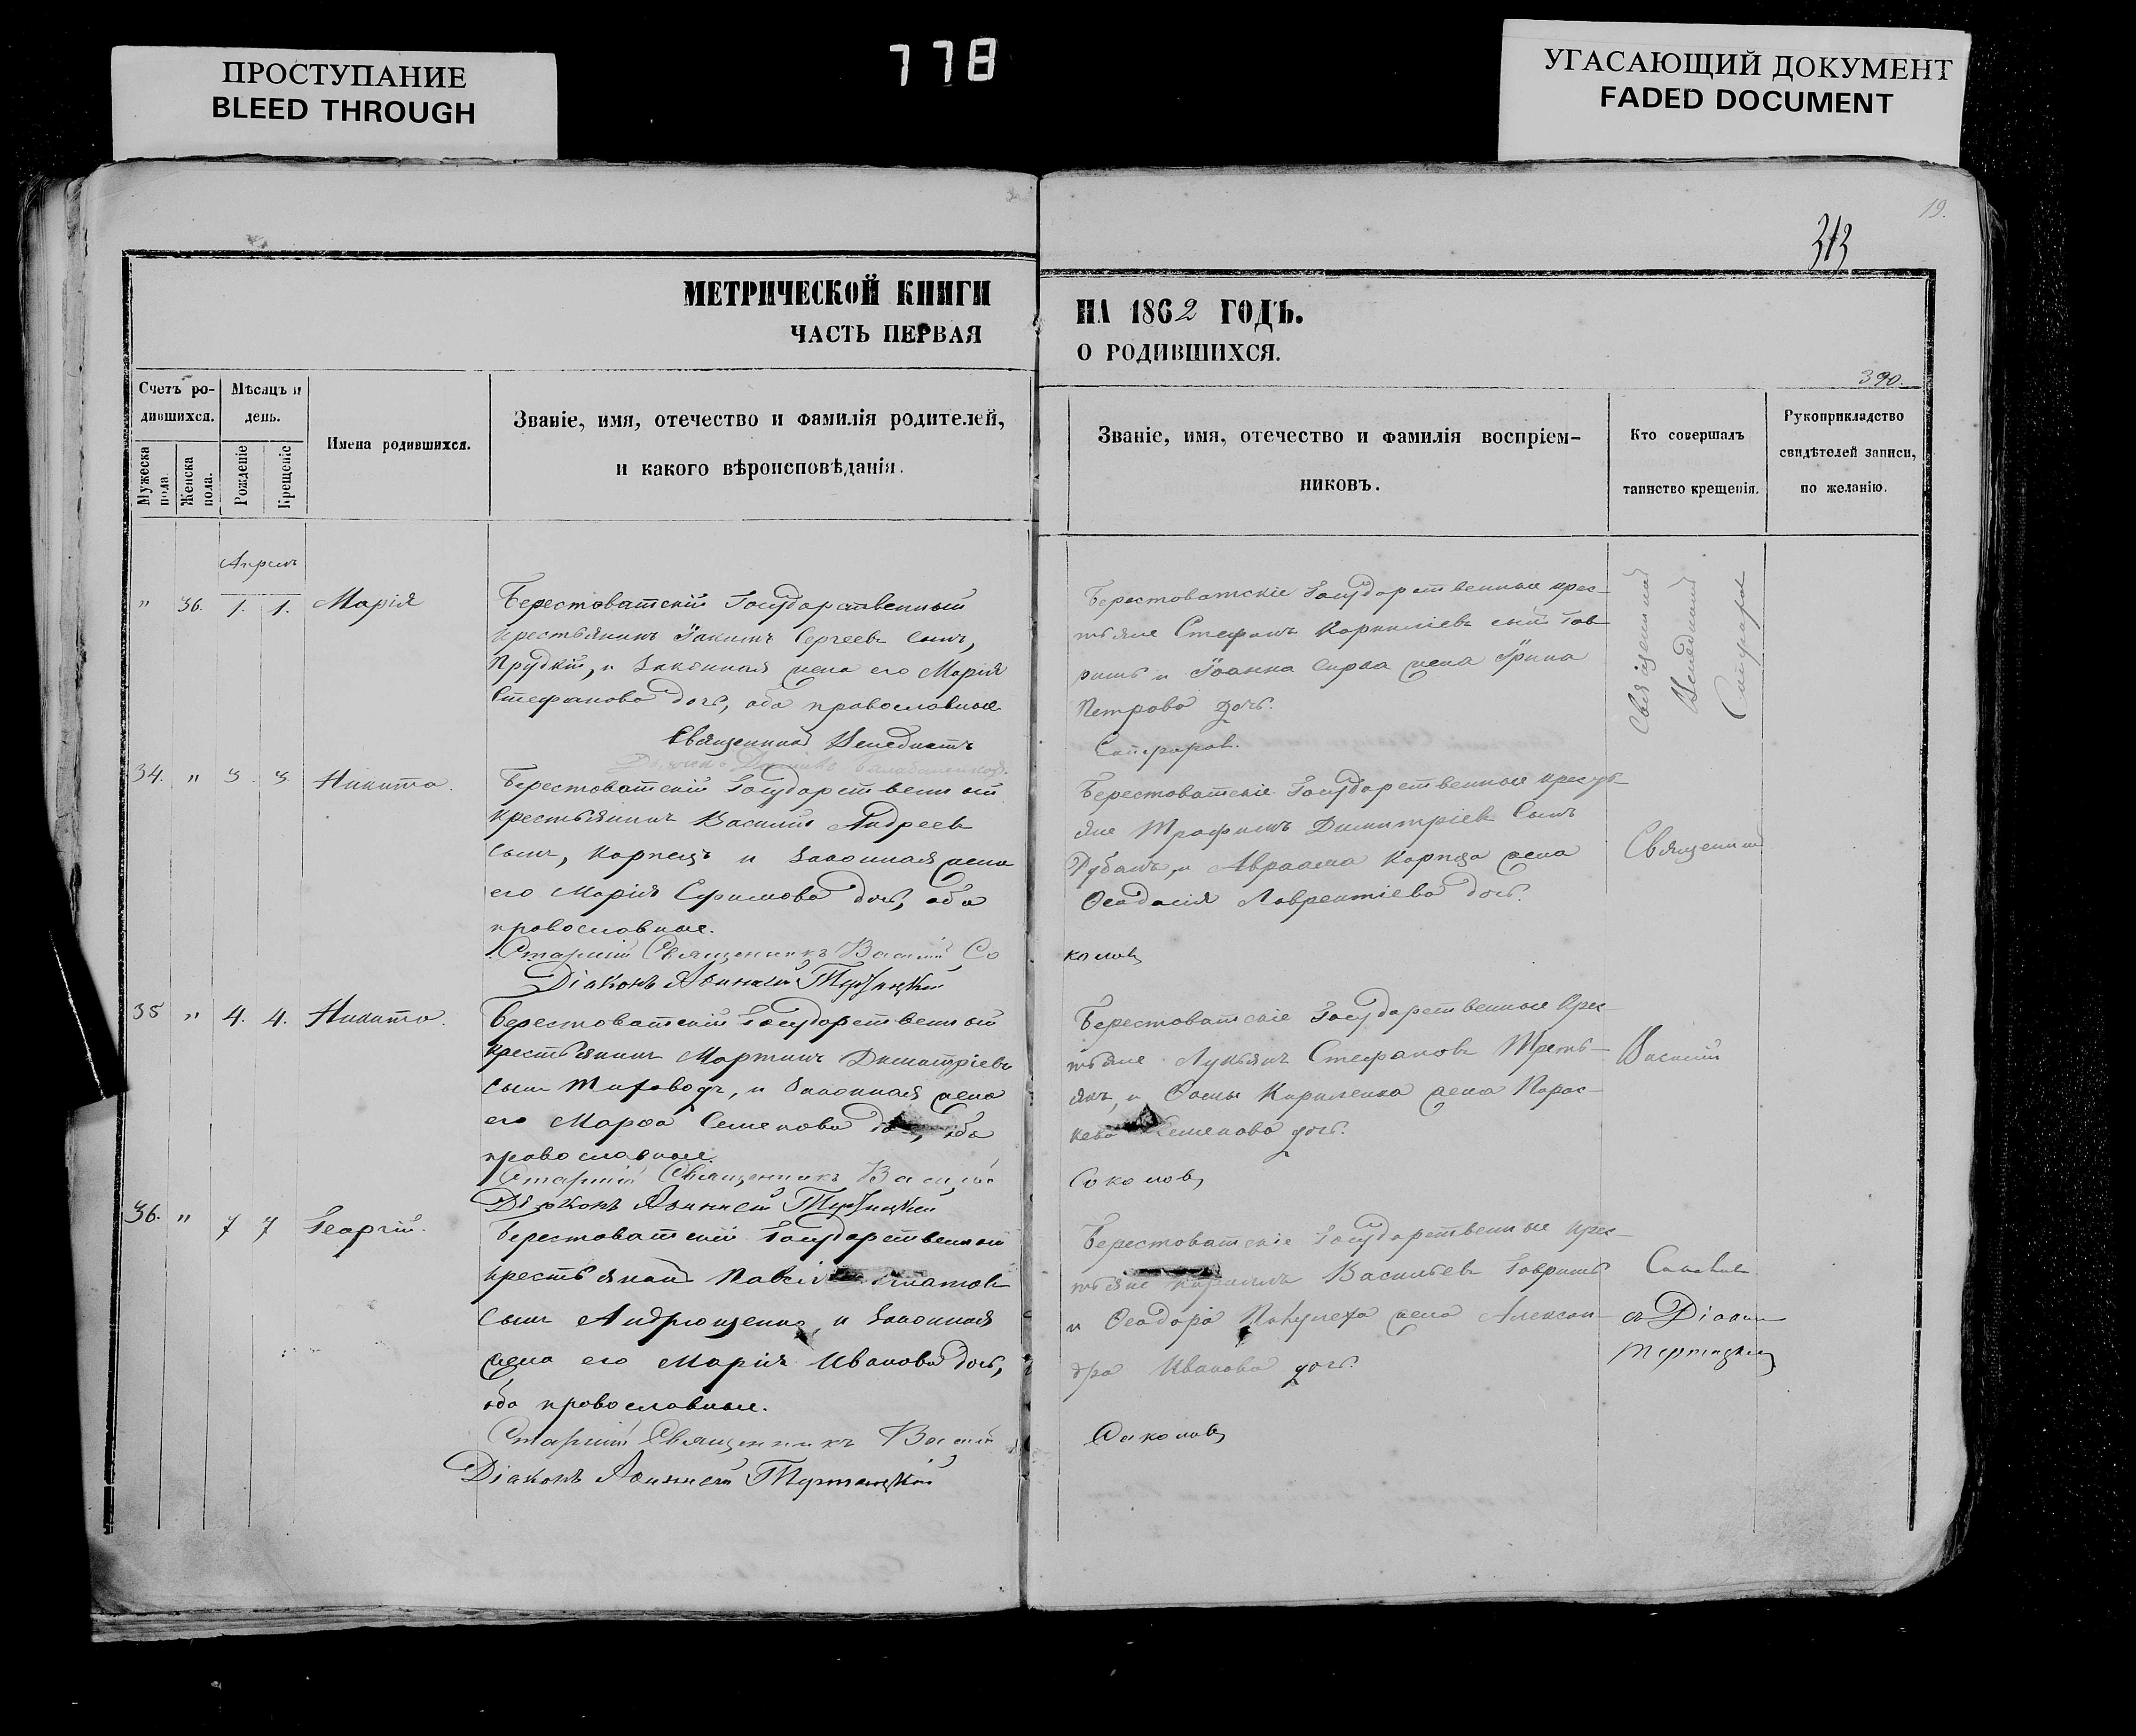 ПРОСТУПАНИЕ
BLEED THROUGH
778
УГАСАЮЩИЙ ДОКУМЕНТ
FADED DOCUMENT
19.
313
МЕТРИЧЕСКОЙ КНИГИ
ЧАСТЬ ПЕРВАЯ
НА 1862 ГОДЪ.
О РОДИВШИХСЯ.
390.
Счетъ ро-
дившихся.
Мѣсяцъ и
день.
Мужеска пола.
Женска пола.
Рожденіе
Крещеніе
Имена родившихся.
Званіе, имя, отечество и фамилія родителей,
и какого вѣроисповѣданія.
Званіе, имя, отечество и фамилія воспріем-
никовъ.
Кто совершалъ
таинство крещенія.
Рукоприкладство
свидѣтелей записи,
по желанію.
Апрель
" 36. 1. 1. Марія
Берестоватскій Государственный
крестьянинъ Іакимъ Сергеевъ сынъ,
Прудкій, и законная жена его Марія
Стефанова дочь, оба православные
Священникъ Венедиктъ
Берестоватскіе Государственные крес-
тьяне Стефанъ Корниліевъ сынъ Гав
ришъ и Іоанна жена Ірина
Петрова дочь.
Священникъ
Венедиктъ
34. " 3. 3. Никита.
Берестоватскій Государственный
крестьянинъ Василій Андреевъ
сынъ, Карпецъ и законная жена
его Марія Ефимова дочь, оба
православные.
Старшій Священникъ Василій Со
Діаконъ
Берестоватскіе Государственные кресть-
яне Трофимъ Димитріевъ Сынъ
Рубанъ, и Авраама Карпца жена
Феодосія Лаврентіева дочь.
коловъ
Священникъ
35 " 4. 4. Никита.
Берестоватскій Государственный
крестьянинъ Мартинъ Димитріевъ
сынъ и законная жена
его Марфа Семенова оба
православные.
Старшій Священникъ Василій
Діаконъ
Берестоватскіе Государственные крес-
тьяне Лукьянъ Стефановъ Треть-
якъ, и Фомы Кириленка жена Парас-
кева Семенова дочь.
Соколовъ
Василій
36. " 7 7 Георгій.
Берестоватскій Государственный
крестьянинъ
сынъ Андрющенко, и законная
жена его Марія Иванова дочь,
оба православные.
Старшій Священникъ Василій
Діаконъ
Берестоватскіе Государственные крес-
тьяне Васильевъ Гавришъ
и Феодора жена Алексан-
дра Иванова дочь.
Соколовъ
Соколовъ
съ Діакон